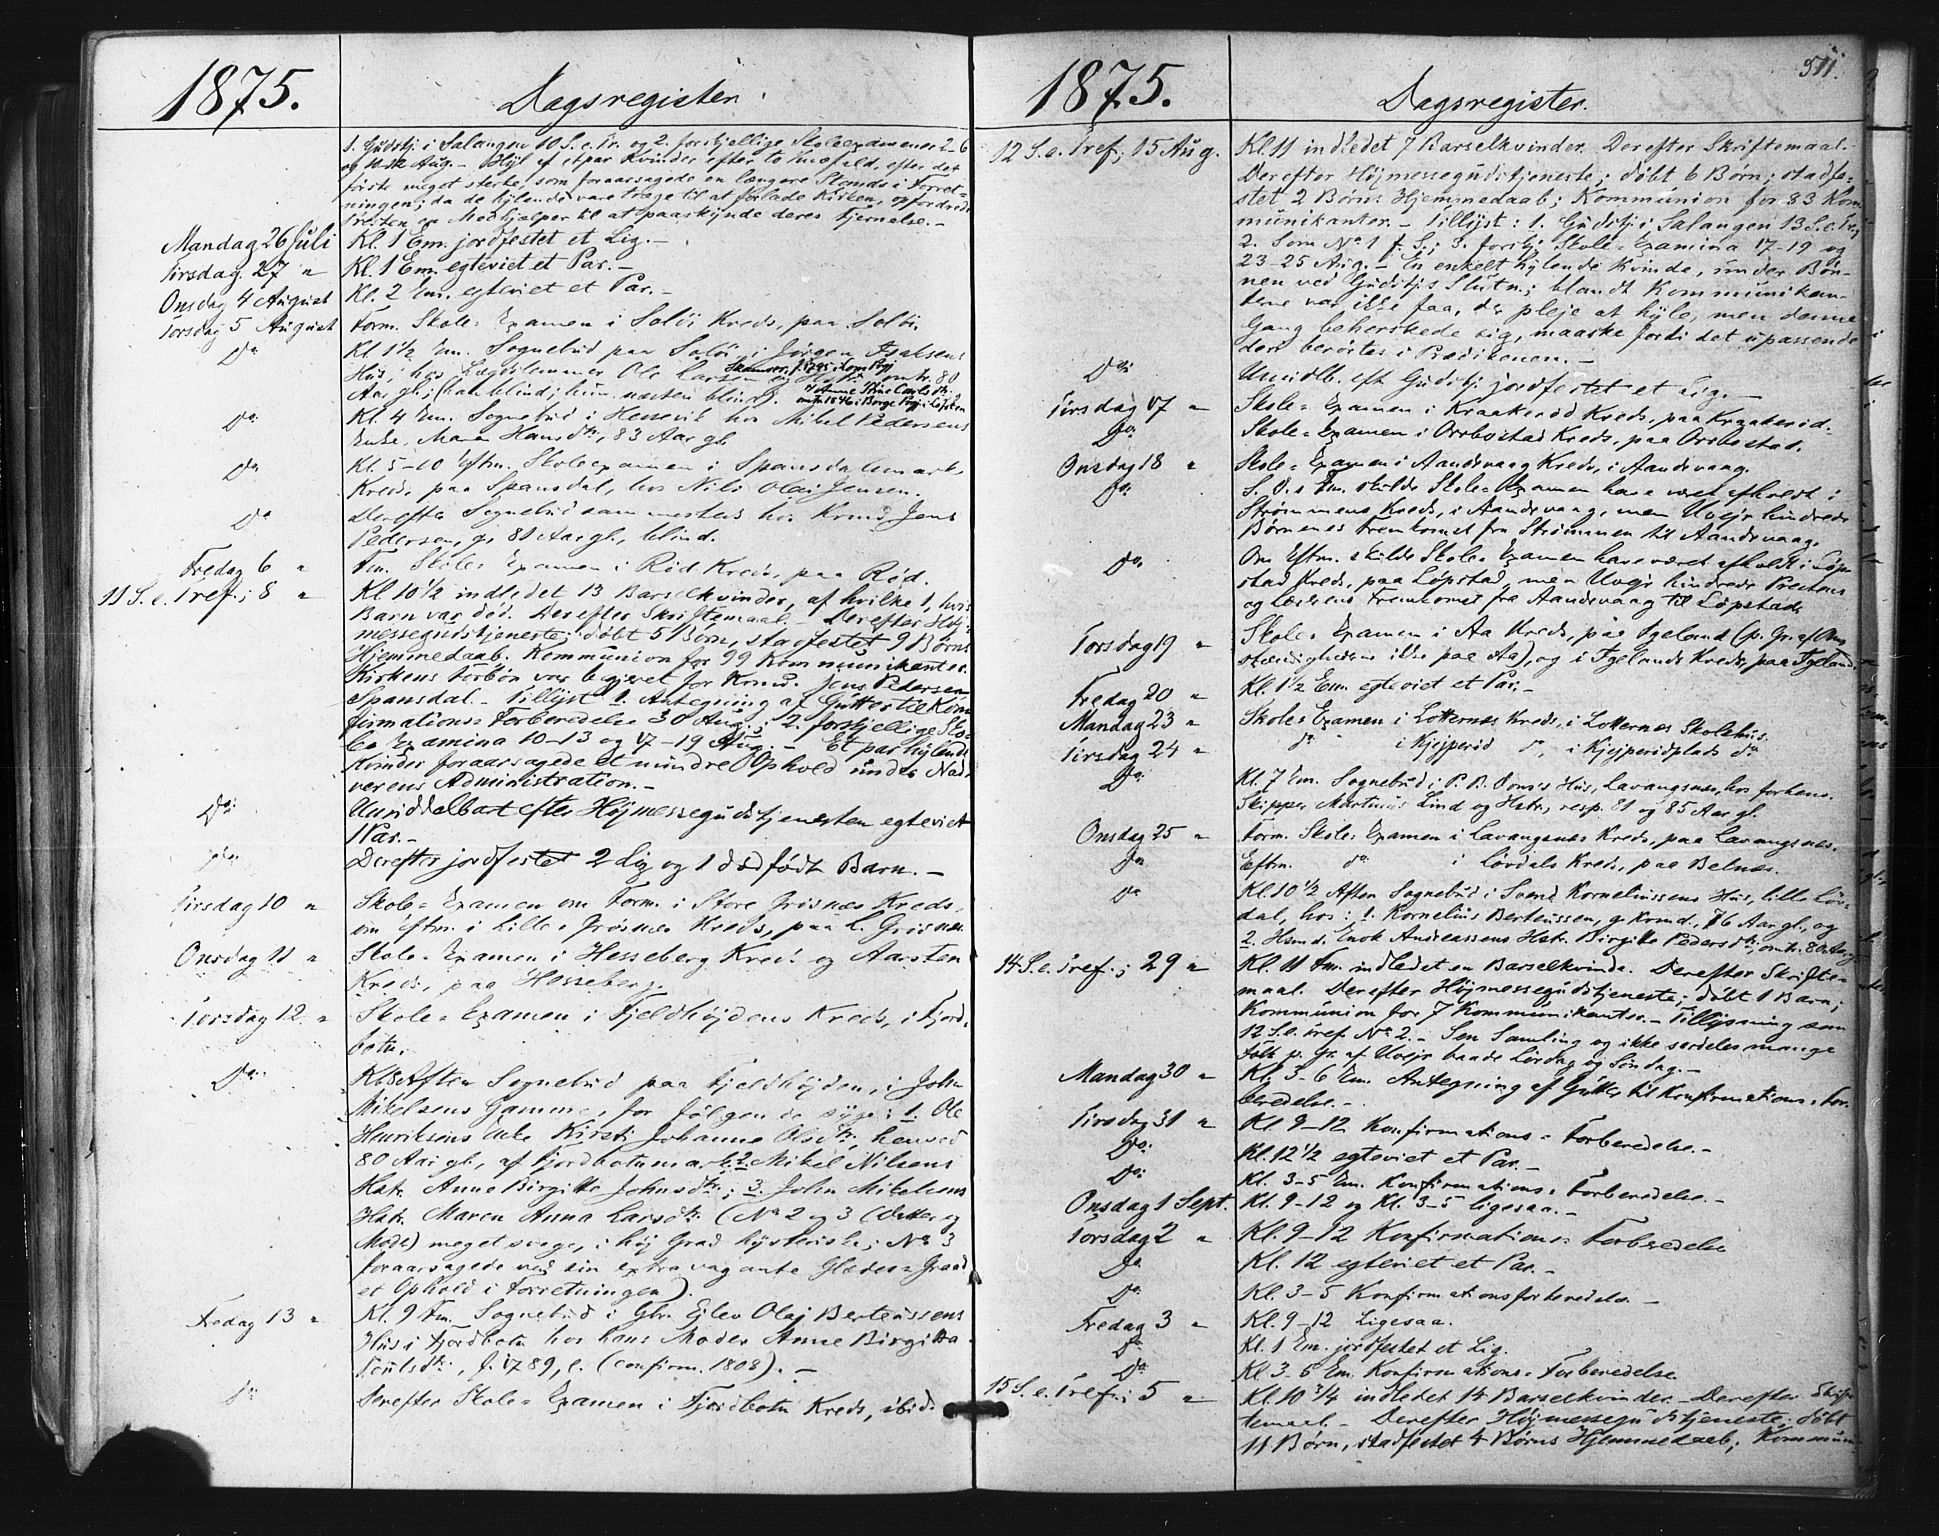 1875.
Dagsregister.
1. Gudstj. i Salangen 10 S. e. Tr. og 2. forskjellige Skoleexamener 2-6
og Aug. - Hyl af et par Kvinder efter to det
første meget sterke, som foraarsagede en længere Stands i Forret-
ningen; da de hylende vare trage til at forlade Kirken, opfordrede
Presten en Medhjælper til at paaskynde deres Fjernelse. -
Mandag 26 Juli Kl. 1 Em. jordfestet et Lig. -
Tirsdag 27 " Kl. 1 Em. egteviet et Par. -
Onsdag 4 August Kl. 2 Em. egteviet et Par. -
Torsdag 5 August Form. Skole-Examen i Soløi Kreds, paa Soløi.
Do Kl. 1½ Em. Sognebud paa Soløi i Jørgen Isaksens
Hus, hos Lægdslemmer Ole Larsen omtr. 80
Aar gl. (han blind; hun næsten blind).
Do Kl. 4 Em. Sognebud i Hessevik hos Mikel Pedersens
Enke, Maren Hansdtr, 83 Aar gl.
Do Kl. 5-10 Eftm. Skoleexamen i Spansdalsmark
Kreds, paa Spansdal, hos Nils Olai Jensen.
Do Derefter Sognebud sammesteds hos Knud Jens
Pedersen, g. 80 Aar gl., blind.
Fredag 6 " Fm. Skole-Examen i Rød Kreds, paa Rød.
11 S. e. Tref.; 8 " Kl. 10½ indledet 13 Barselkvinder, af hvilke 1, hvis
Barn var død. Derefter Skriftemaal. - Derefter Høj-
messegudstjeneste; døbt 5 Børn, stadfestet 9 Børns
Hjemmedaab. Kommunion for 99 Kommunikanter.
Kirkens Forbøn var begjeret for Knud Jens Pedersen
Spansdal. - Tillyst 1. Antegning af Gutter til Kon-
firmations Forberedelse 30 Aug.; 2. forskjellige Sko-
le Examina 10-13 og 17-19 Aug. - Et par hylende
Kvinder foraarsagede et mindre Ophold under Nad-
verens Administration. -
Do: Umiddelbart efter Højmessegudstjenesten egteviet
1 Par. -
Do Derefter jordfestet 2 Lig og 1 dødfødt Barn. -
Tirsdag 10 " Skole-Examen om Form. i Store Grøsnæs Kreds,
om Eftm. i Lille Grøsnæs Kreds, paa L. Grøsnæs.
Onsdag 11 " Skole-Examen i Hesseberg Kreds og Aarsten
Kreds, paa Hesseberg.
Torsdag 12 " Skole-Examen i Fjeldhøjdens Kreds, i Fjord-
botn.
Do Kl. 8 Aften Sognebud paa Fjeldhøjden, i John
Mikelsens Gamme, for følgende syge: 1. Ole
Henriksens Enke Kirsti Johanne Olsdtr, henved
80 Aar gl., af Fjordbotnmark; 2. Mikel Nilsens
Hstr. Anne Birgitte Johnsdtr; 3. John Mikelsens
Hstr. Maren Anna Larsdtr (No 2 og 3 (Datter og
Moder) meget svage, i høj Grad hysteriske; No 3
foraarsagede ved sin extravagante Glædes-Graad
et Ophold i Forretningen).
Fredag 13 " Kl. 9 Fm. Sognebud i Gbr. Ejlev Olaj Berteussens
Hus i Fjordbotn hos hans Moder Anne Birgitta
Poulsdtr, f. 1789, (confirm. 1808). -
Do Derefter Skole-Examen i Fjordbotn Kreds, ibid.
1875.
Dagsregister.
511.
12 S. e. Tref.; 15 Aug. Kl. 11 indledet 7 Barselkvinder. Derefter Skriftemaal. -
Derefter Højmessegudstjeneste; døbt 6 Børn; stadfe-
stet 2 Børns Hjemmedaab; Kommunion for 83 Kom-
munikanter. - Tillyst: 1. Gudstj. i Salangen 13 S. e. Tr.;
2. Som No 1 f. S.; 3. forskj. Skole-Examina 17-19 og
23-25 Aug. - En enkelt hylende Kvinde, under Bøn-
nen ved Gudstj.s Slutn.; blandt Kommunikan-
terne var ikke faa, der pleje at hyle, men denne
Gang beherskede sig, maaske fordi det upassende
deri berørtes i Prædikenen. -
Do: Umidlb. eft. Gudstj. jordfestet et Lig. -
Tirsdag 17 " Skole-Examen i Kraakerød Kreds, paa Kraakerød.
Do Skole-Examen i Orrbostad Kreds, paa Orrbostad.
Onsdag 18 " Skole-Examen i Aandsvaag Kreds, i Aandsvaag.
Do: S. D.s Em. skulde Skole-Examen have været afholdt i
Strømmens Kreds, i Aandsvaag, men Uvejr hindrede
Børnenes Fremkomst fra Strømmen til Aandsvaag.
Do Om Eftm. skulde Skole-Examen have været afholdt i Løp-
stad Kreds, paa Løpstad, men Uvejr hindrede Prestens
og Lærerens Fremkomst fra Aandsvaag til Løpstad.
Torsdag 19 " Skole-Examen i Aa Kreds, paa Tgeland (p. Gr. af Om-
stændighederne ikke paa Aa), og i Tgelands Kreds, paa Tgeland.
Fredag 20 " Kl. 1½ Em. egteviet et Par. -
Mandag 23 " Skole-Examen i Lotternæs Kreds, i Lotternæs Skolehus.
Tirsdag 24 " do i Kjejperød do, i Kjejperødplads do
Do: Kl. 7 Em. Sognebud i P. B. Hus, Lavangsnes, hos forhenv.
Skipper Martinus Lind og Hstr, resp. 81 og 85 Aar gl.
Onsdag 25 " Form. Skole-Examen i Lavangsnæs Kreds, paa Lavangsnæs.
Do Eftm. do i Løvdals Kreds, paa Belnæs.
Do Kl. 10½ Aften Sognebud i Svend Korneliussens Hus, lille Løv-
dal, hos: 1. Kornelius Berteussen, g. Kornd., 76 Aar gl., og
2. Hsmd. Enok Andreassens Hstr. Birgitte Pedersdtr, omtr. 80 Aar gl.
14 S. e. Tref.; 29 " Kl. 11 Fm. indledet en Barselkvinde. Derefter Skrifte-
maal. Derefter Højmessegudstjeneste; døbt 1 Barn;
Kommunion for 7 Kommunikanter. - Tillysning som
12 S. e. Tref. No 2. - Sen Samling og ikke særdeles mange
Folk p. Gr. af Uvejr baade Lørdag og Søndag. -
Mandag 30 " Kl. 3-6 Em. Antegning af Gutter til Konfirmations-For-
beredelse. -
Tirsdag 31 " Kl. 9-12 Konfirmations-Forberedelse. -
Do: Kl. 12½ egteviet et Par. -
Do: Kl. 3-5 Em. Konfirmations-Forberedelse. -
Onsdag 1 Sept. Kl. 9-12 og Kl. 3-5 ligesaa. -
Torsdag 2 " Kl. 9-12 Konfirmations-Forberedelse
Do Kl. 12 egteviet et Par. -
Do Kl. 3-5 Konfirmationsforberedelse. -
Fredag 3 " Kl. 9-12 Ligesaa.
Do Kl. 1 Em. jordfestet et Lig.
Do Kl. 3-6 Em. Konfirmations-Forberedelse
15 S. e. Tref.; 5 " Kl. 10¾ indledet 14 Barselkvinder. - Derefter Skrif-
temaal. - Derefter Højmessegudstjeneste; døbt
11 Børn, stadfestet 4 Børns Hjemmedaab; Kommun-